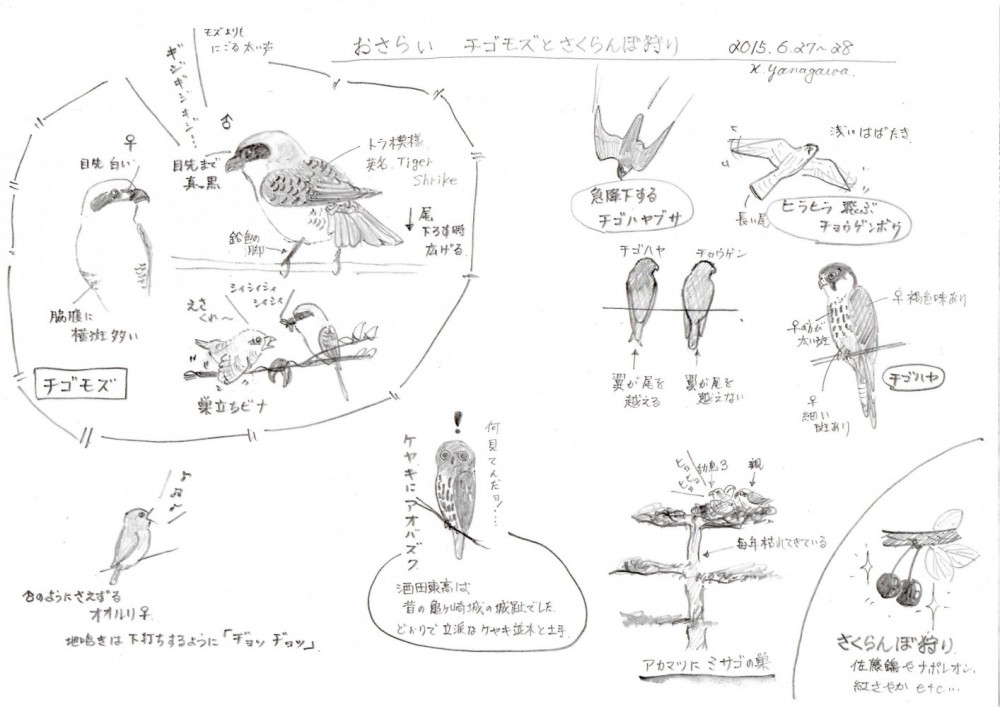 おさらい チゴモズとさくらんぼ狩り
2015.6.27~28
K.Yanagawa.
モズよりも
にごる太い声
ギジギジギシ…
♂
目先まで
真黒
♀
目先 白い
トラ模様
英名. Tiger
Shrike
↓尾
下ろす時
広げる
鉛色の
脚
脇腹に
横斑多い
えさ
くれ〜
シィシィシィ
シィシィ
巣立ちビナ
チゴモズ
急降下する
チゴハヤブサ
浅いはばたき
長い尾
ヒラヒラ飛ぶ
チョウゲンボウ
チゴハヤ
チョウゲン
翼が尾を
越える
翼が尾を
越えない
♀褐色味あり
♀の方が
太い斑
♀
細い
斑あり
チゴハヤ
♂のようにさえずる
オオルリ♀
地鳴きは下打ちするように「ヂョッ ヂョッ」
!
何見てんだョ!…
ケヤキにアオバズク
酒田東高は、
昔の亀ヶ崎城の城趾でした
どおりで立派なケヤキ並木と土手.
ピョピョピョ
幼鳥3
親
毎年枯れてきている
アカマツにミサゴの巣
さくらんぼ狩り
佐藤錦やナポレオン.
紅さやか etc…